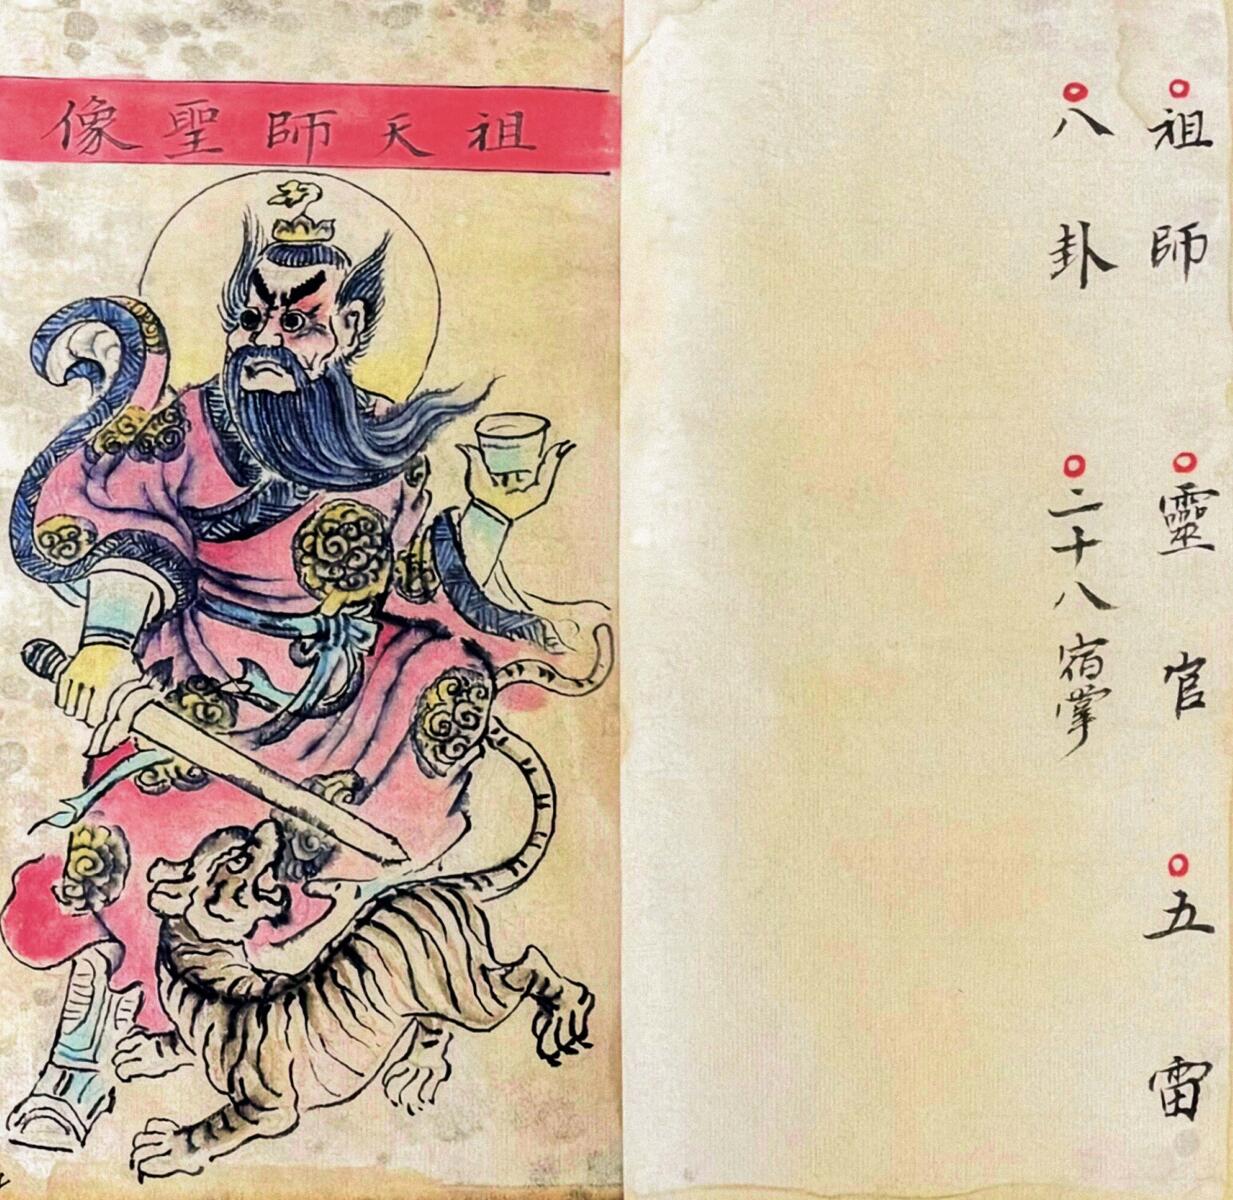 祖師 靈官 五雷
八卦 二十八宿掌
祖天師聖像